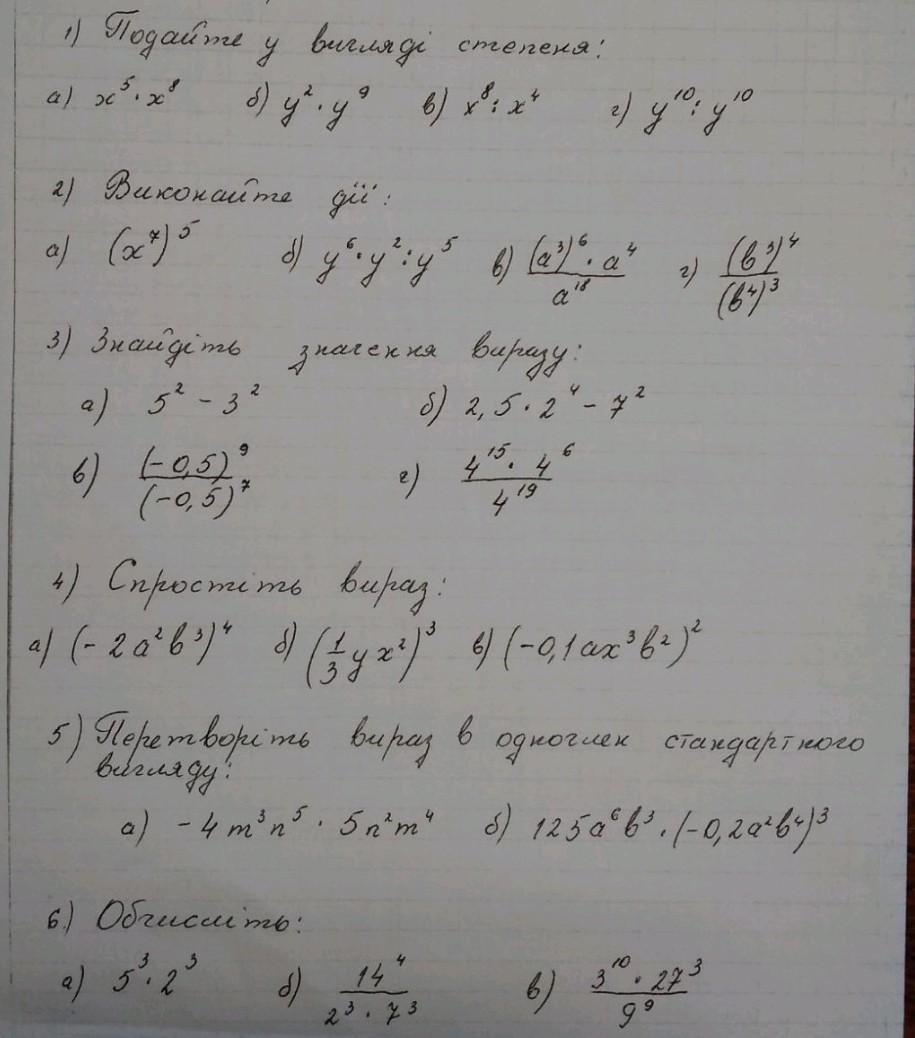 1) Подайте у вигляді степеня:
а) x⁵ · x⁸ б) y² · y⁹ в) x⁸ : x⁴ г) y¹⁰ : y¹⁰
2) Виконайте дії:
а) (x⁷)⁵ б) y⁶ · y² : y⁵ в) (a³)⁶ · a⁴ / a¹⁸ г) (b³)⁴ / (b⁴)³
3) Знайдіть значення виразу:
а) 5² - 3² б) 2,5 · 2⁴ - 7²
в) (-0,5)⁹ / (-0,5)⁷ г) 4¹⁵ · 4⁶ / 4¹⁹
4) Спростіть вираз:
а) (- 2a²b³)⁴ б) (1/3 y x²)³ в) (-0,1ax³b²)²
5) Перетворіть вираз в одночлен стандартного
вигляду:
а) -4m³n⁵ · 5n²m⁴ б) 125a⁶b³ · (-0,2a²b⁴)³
6) Обчисліть:
а) 5³ · 2³ б) 14⁴ / 2³ · 7³ в) 3¹⁰ · 27³ / 9⁹